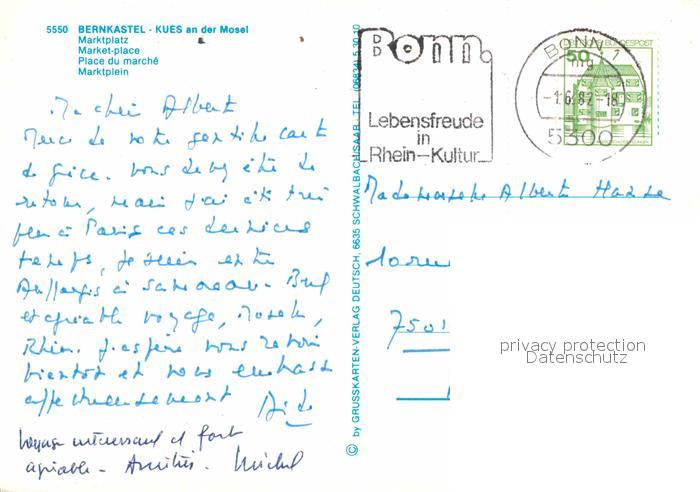 5550 BERNKASTEL - KUES an der Mosel
Marktplatz
Market-place
Place du marché
Marktplein
Ma chère Alberte
Merci de votre gentille carte
de Grèce. Vous devez être de
retour, mais j'ai été très
peu à Paris ces derniers
temps, je suis entre
à
et agréable voyage, Moselle,
Rhin. J'espère vous revoir
bientôt et vous embrasse
affectueusement
Voyage intéressant et fort
agréable - Amitiés. Michel
© by GRUSSKARTEN-VERLAG DEUTSCH, 6635 SCHWALBACH/SAAR, TEL. (06834) 5 30 10
Bonn.
Lebensfreude
in
Rhein-Kultur
BONN 1
mg
-1.6.82-18
5300
50
DEUTSCHE BUNDESPOST
Mademoiselle Alberte
10 rue
7501
privacy protection
Datenschutz